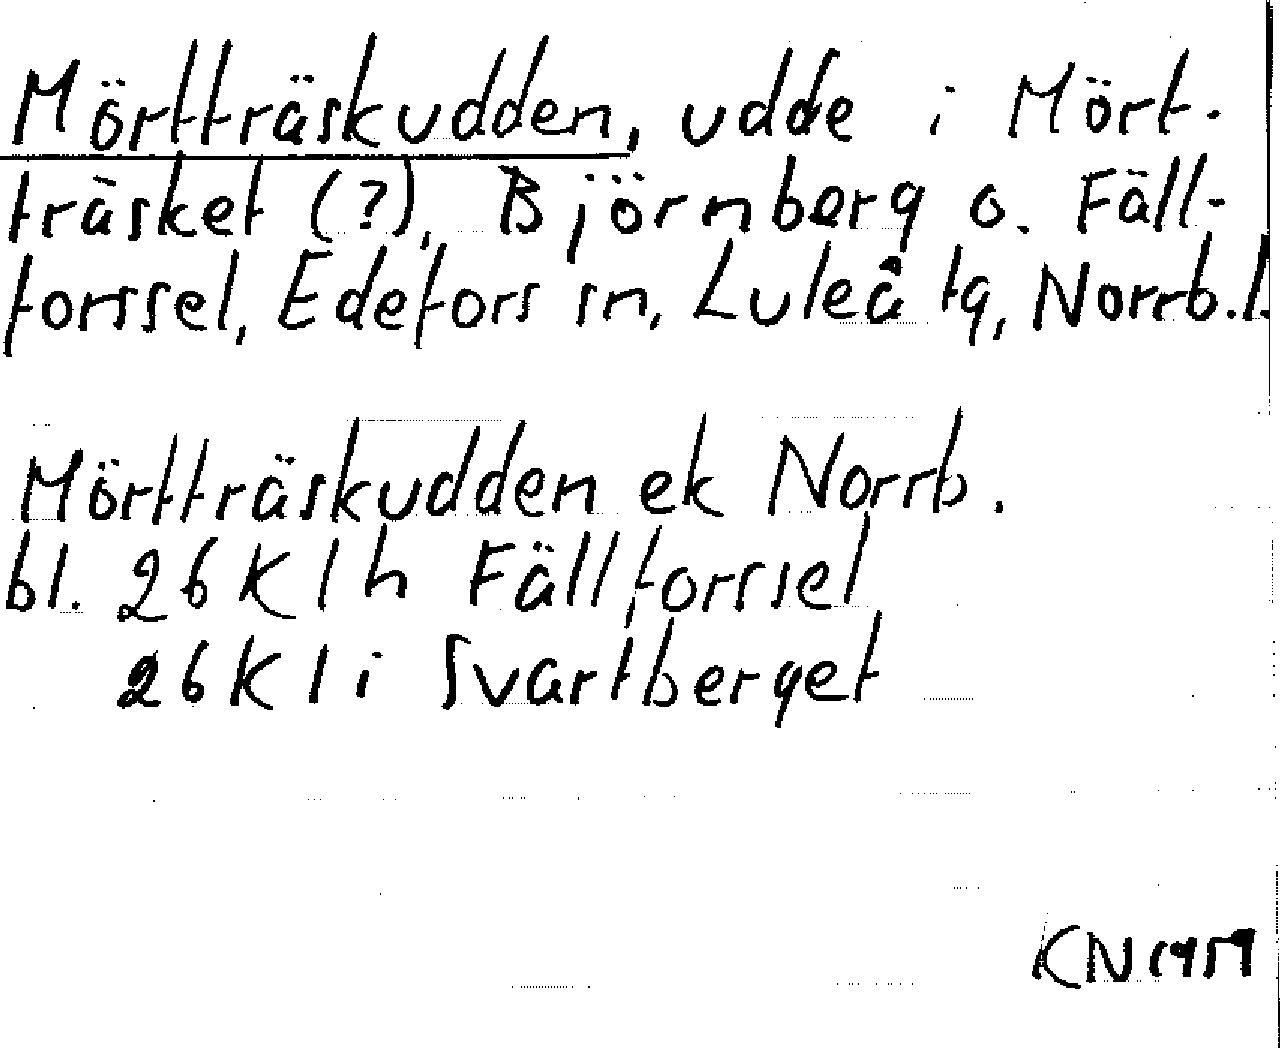 Mörtträskudden, udde i Mört-
träsket (?), Björnberg o. Fäll-
forssel, Edefors sn, Luleå tg, Norrb.l.
Mörtträskudden ek Norrb.
bl. 26 K 1 h Fällforssel
26 K 1 i Svartberget
KN 1959